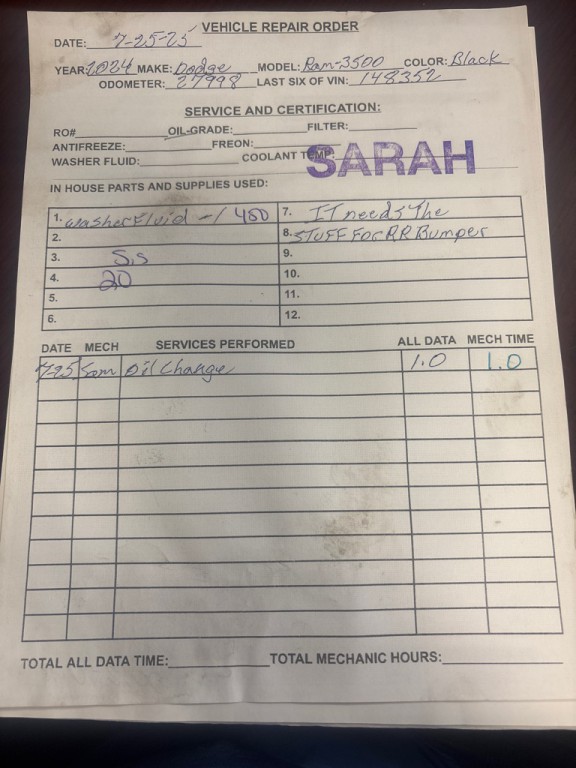 VEHICLE REPAIR ORDER
DATE: 7-25-25
YEAR: 2024 MAKE: Dodge MODEL: Ram-3500 COLOR: Black
ODOMETER: 27998 LAST SIX OF VIN: 148352
SERVICE AND CERTIFICATION:
RO# OIL-GRADE: FILTER:
ANTIFREEZE: FREON:
WASHER FLUID: COOLANT TEMP:
SARAH
IN HOUSE PARTS AND SUPPLIES USED:
1. Washer Fluid -1 450 7. IT needs The
2. 8. STUFF For RR Bumper
3. S.s 9.
4. 20 10.
5. 11.
6. 12.
DATE MECH SERVICES PERFORMED ALL DATA MECH TIME
7-25 Sam Oil Change 1.0 1.0
TOTAL ALL DATA TIME: TOTAL MECHANIC HOURS: